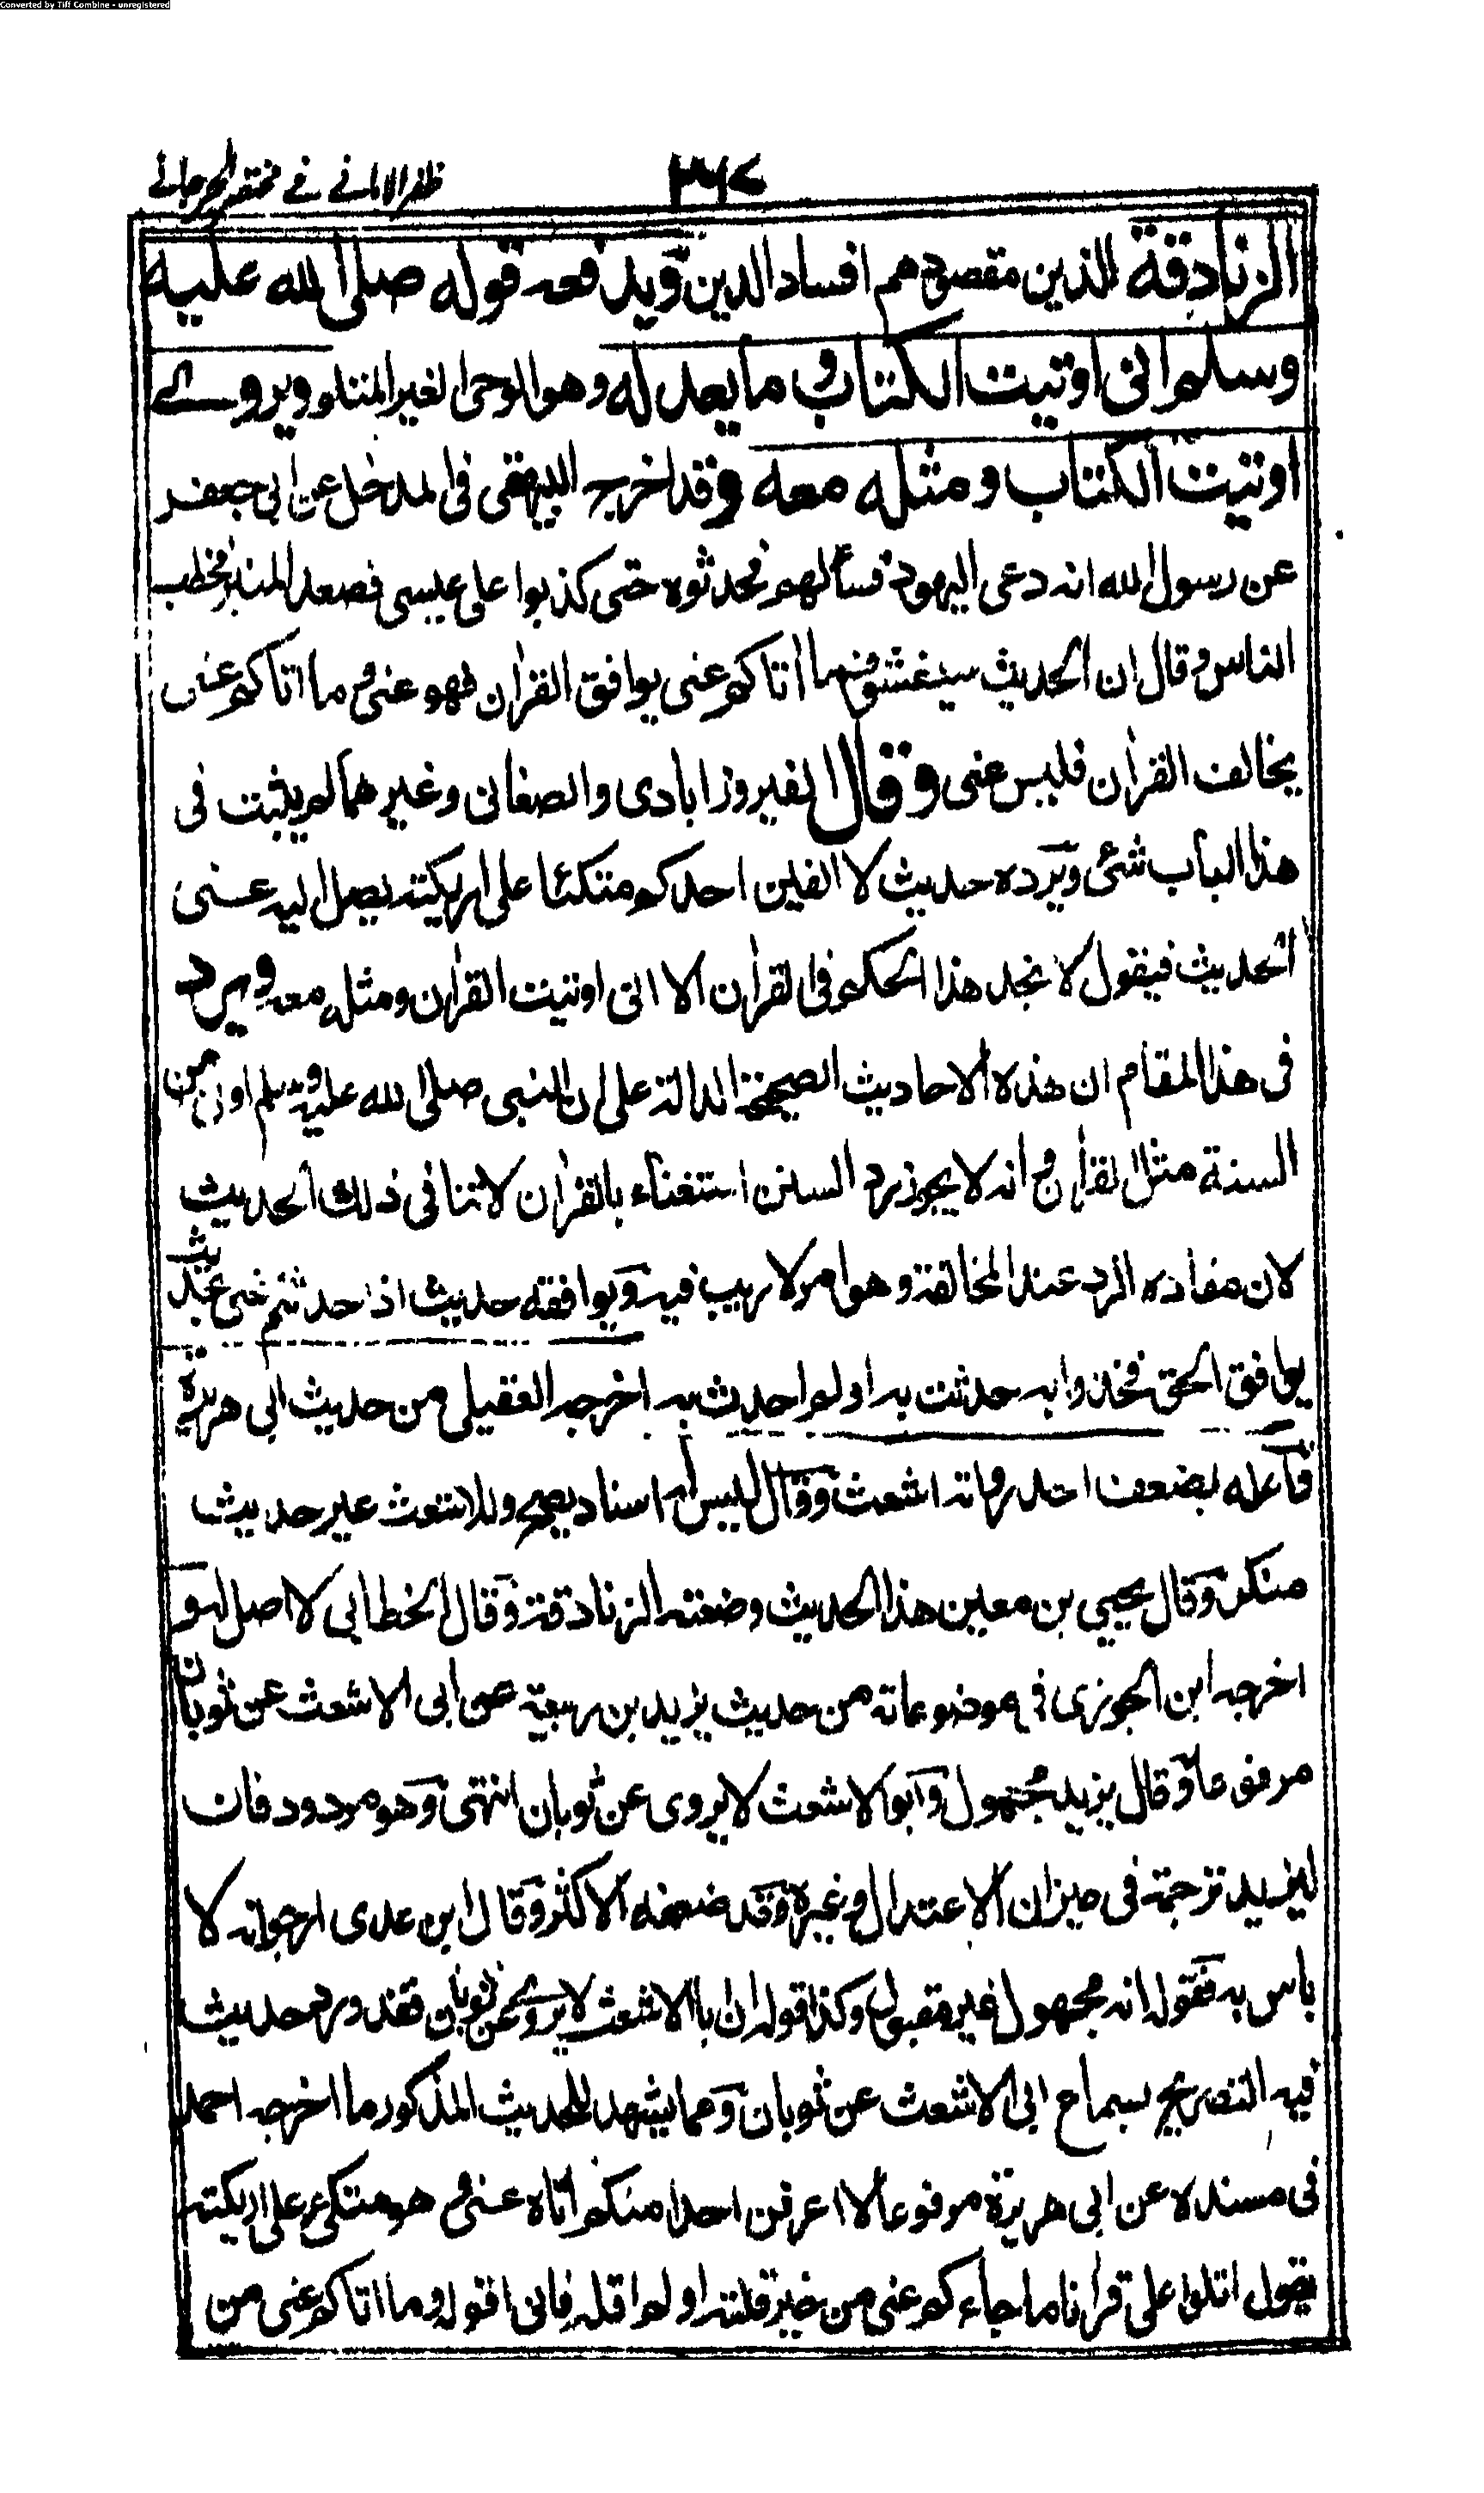 Converted by Tiff Combine - unregistered
٣٦٧ ظفر الامانے فے مختصر الجرجانے
الزنادقة الذین مقصدهم افساد الدین ویدفعه قوله صلی الله علیه
وسلم انی اوتیت الکتاب وما یعدله وهو الوحی الغیر المتلو ویروے
اوتیت الکتاب ومثله معه وقد اخرجه البیهقی فی المدخل عن ابی جعفر
عن رسول الله انه دعی الیهود فسألهم فحدثوه حتی کذبوا علی عیسی فصعد المنبر فخطب
الناس وقال ان الحدیث سیفشو فما اتاکم عنی یوافق القرآن فهو عنی وما اتاکم عنی
یخالف القرآن فلیس عنی وقال الفیروزابادی والصغانی وغیرهما لم یثبت فی
هذا الباب شئ ویرده حدیث لا الفین احدکم متکئا علی اریکته یصل الیه عنی
الحدیث فیقول لا نجد هذا الحکم فی القرآن الا انی اوتیت القرآن ومثله معه ویرد
فی هذا المقام ان هذه الاحادیث الصحیحة الدالة علی ان النبی صلی الله علیه وسلم اوتی من
السنة مثل القرآن وانه لا یجوز رد السنن استغناء بالقرآن لا تنافی ذلك الحدیث
لان مفاده الرد عند المخالفة وهو امر لا ریب فیه ویوافقه حدیث اذا حدثتم عنی بحدیث
یوافق الحق فخذوا به حدثت به او لم احدث به اخرجه العقیلی من حدیث ابی هریرة
فاعله بضعف احد رواته اشعث وقال لیس له اسناد یصح وللاشعث غیر حدیث
منکر وقال یحیی بن معین هذا الحدیث وضعته الزنادقة وقال الخطابی لا اصل له و
اخرجه ابن الجوزی فی موضوعاته من حدیث یزید بن ربیعة عن ابی الاشعث عن ثوبان
مرفوعا وقال یزید مجهول وابو الاشعث لا یروی عن ثوبان انتهی وهو مردود فان
لیزید ترجمة فی میزان الاعتدال وغیره وقد ضعفه الاکثر وقال ابن عدی ارجو انه لا
باس به فقوله انه مجهول غیر مقبول وکذا قوله ان ابا الاشعث لا یروی عن ثوبان فقد ورد حدیث
فیه التصریح بسماع ابی الاشعث عن ثوبان ومما یشهد للحدیث المذکور ما اخرجه احمد
فی مسنده عن ابی هریرة مرفوعا لا اعرفن احدا منکم اتاه عنی وهو متکئ علی اریکته
یقول اتلوا علی قرآنا ما جاءکم عنی من خیر قلته او لم اقله فانی اقوله وما اتاکم عنی من